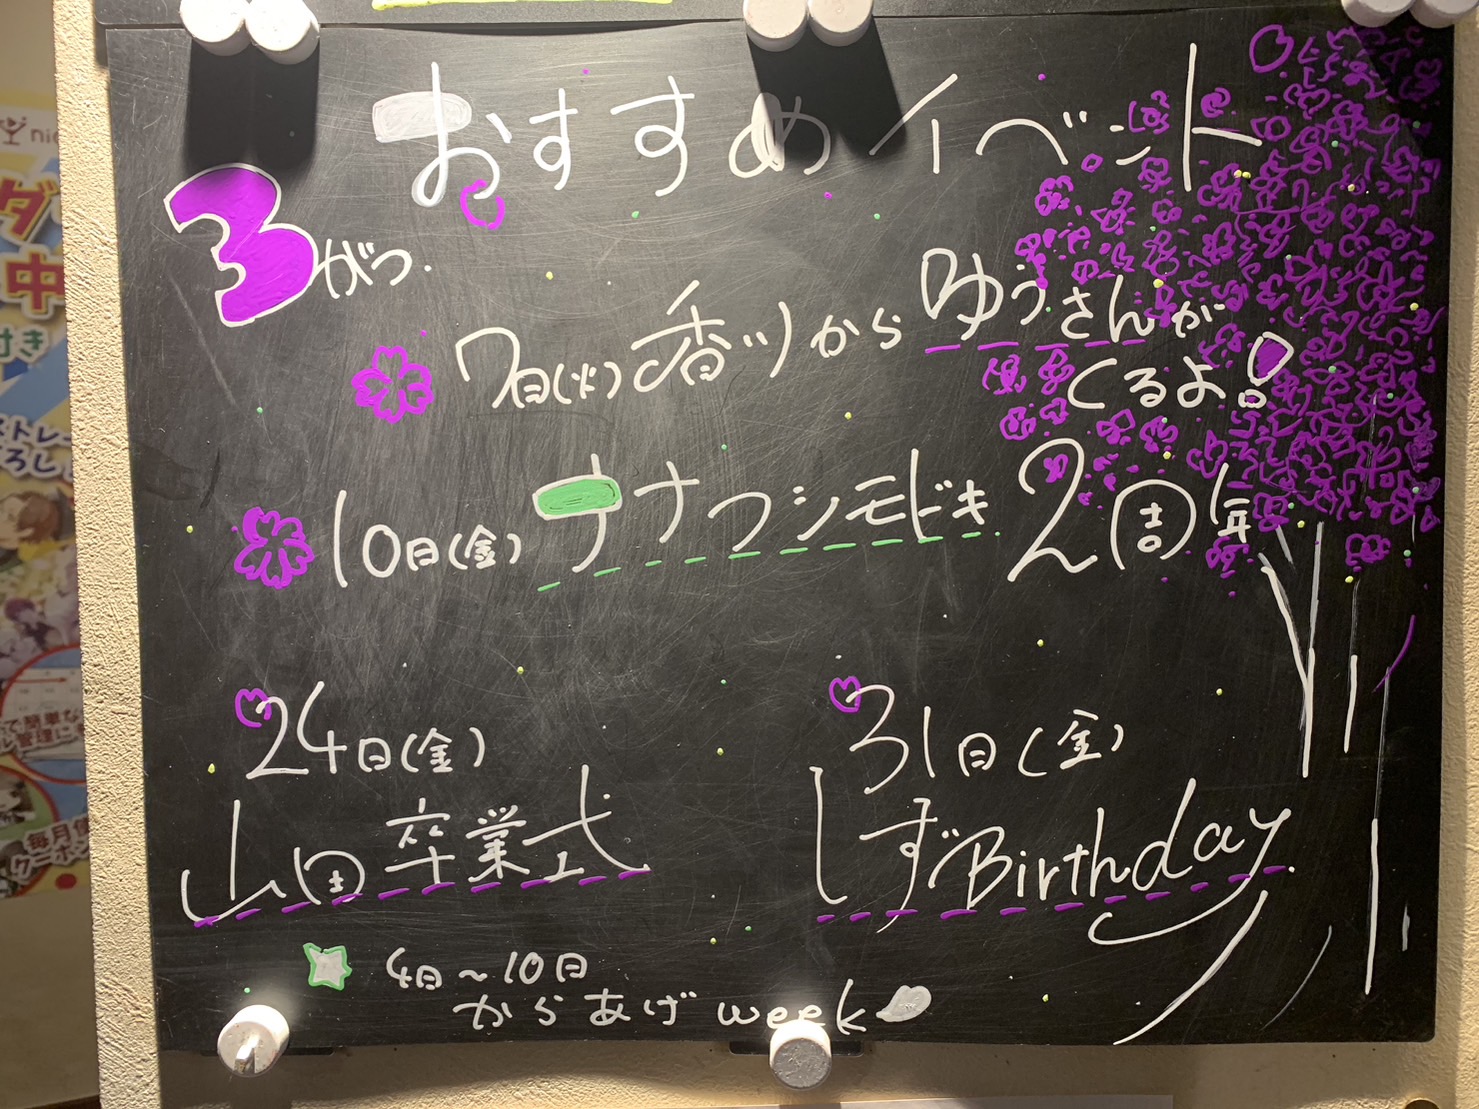 おすすめイベント
3がつ
7日(火)香川からゆうさんが
くるよ!
10日(金)ナナフシモドキ2周年
24日(金)
山田卒業式
31日(金)
しずBirthday
4日～10日
からあげweek
中
付き
ストレー
で簡単な
ル管理にも
毎月使
クーポン